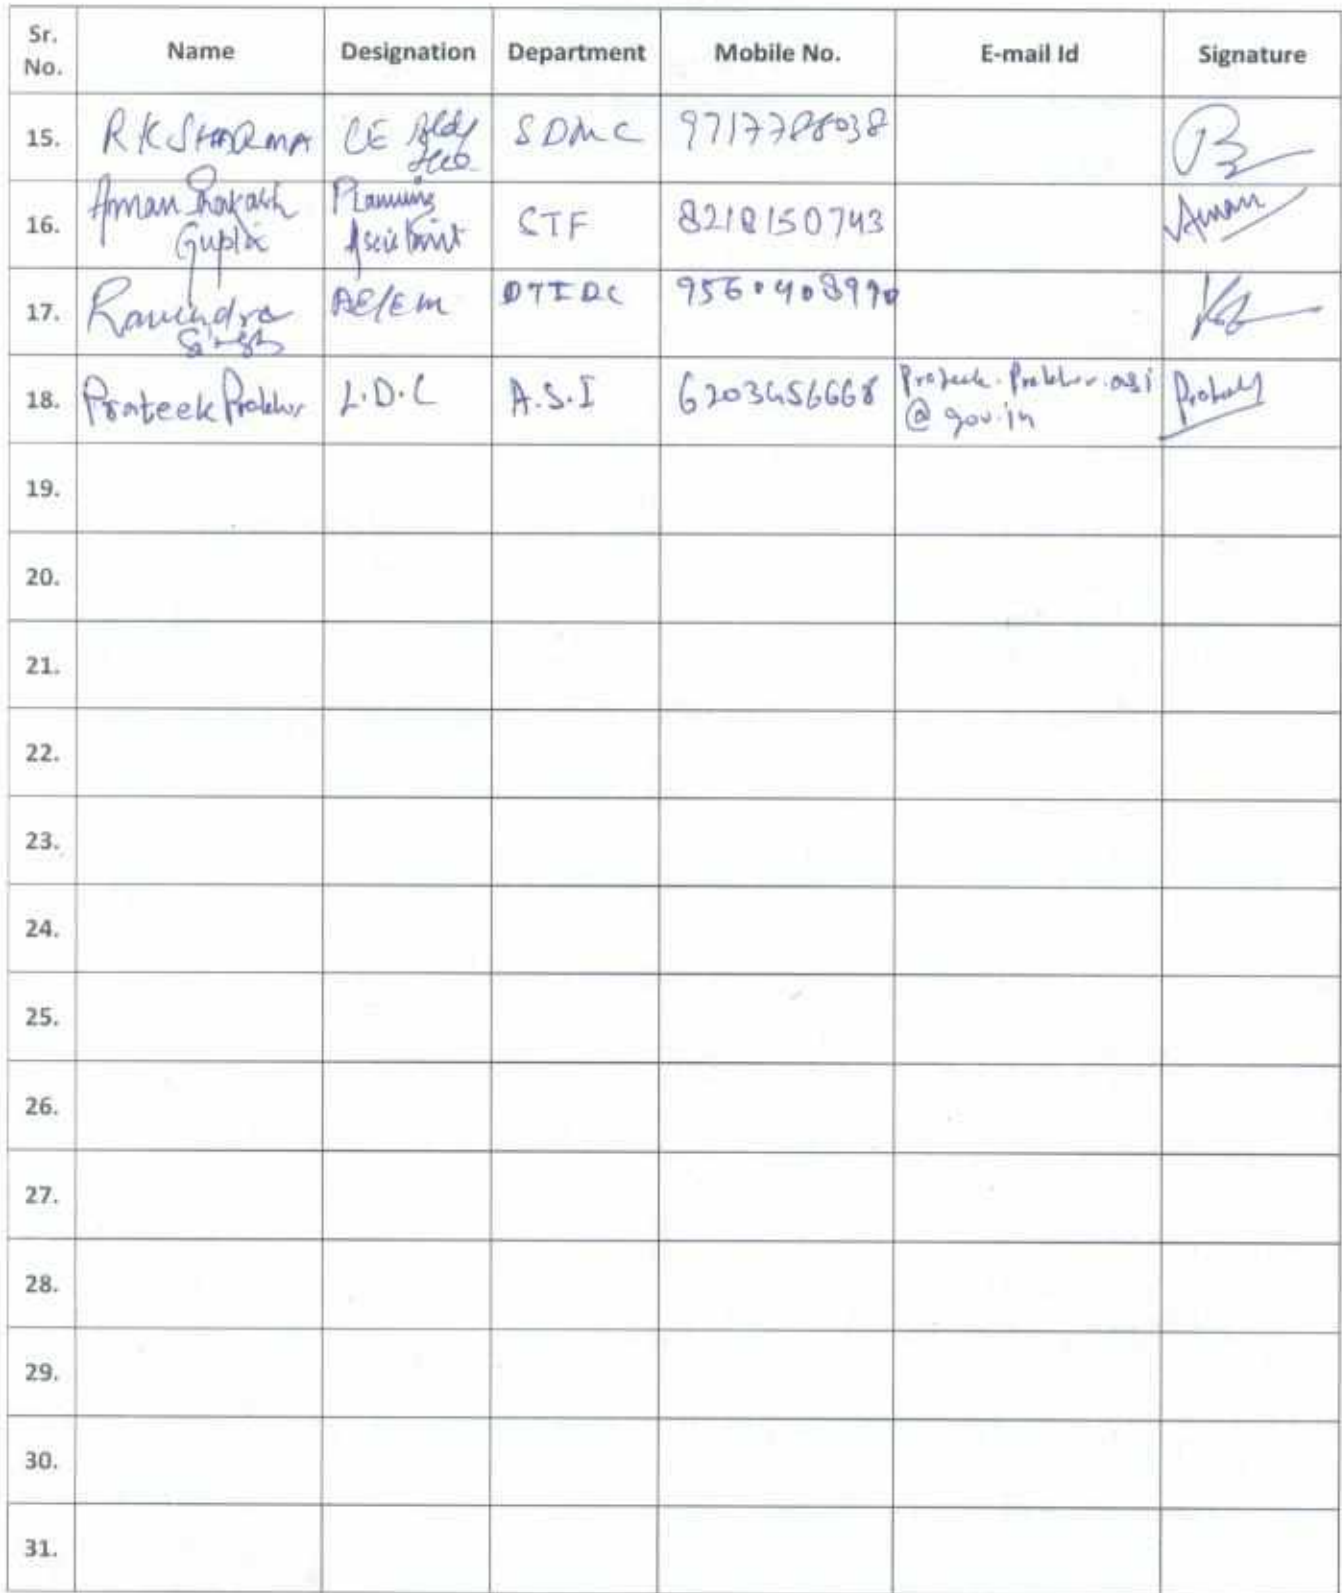 Sr. No. Name Designation Department Mobile No. E-mail Id Signature
15. R K SHARMA CE Bldg SDMC 9717788038
16. Aman Prakash Gupta Planning Assistant STF 8218150743 Aman
17. Ravindra Singh AE/EM DTIDC 9560408990
18. Prateek Prakhar L.D.C A.S.I 6203456668 Prateek.Prakhar.asi@gov.in
19.
20.
21.
22.
23.
24.
25.
26.
27.
28.
29.
30.
31.